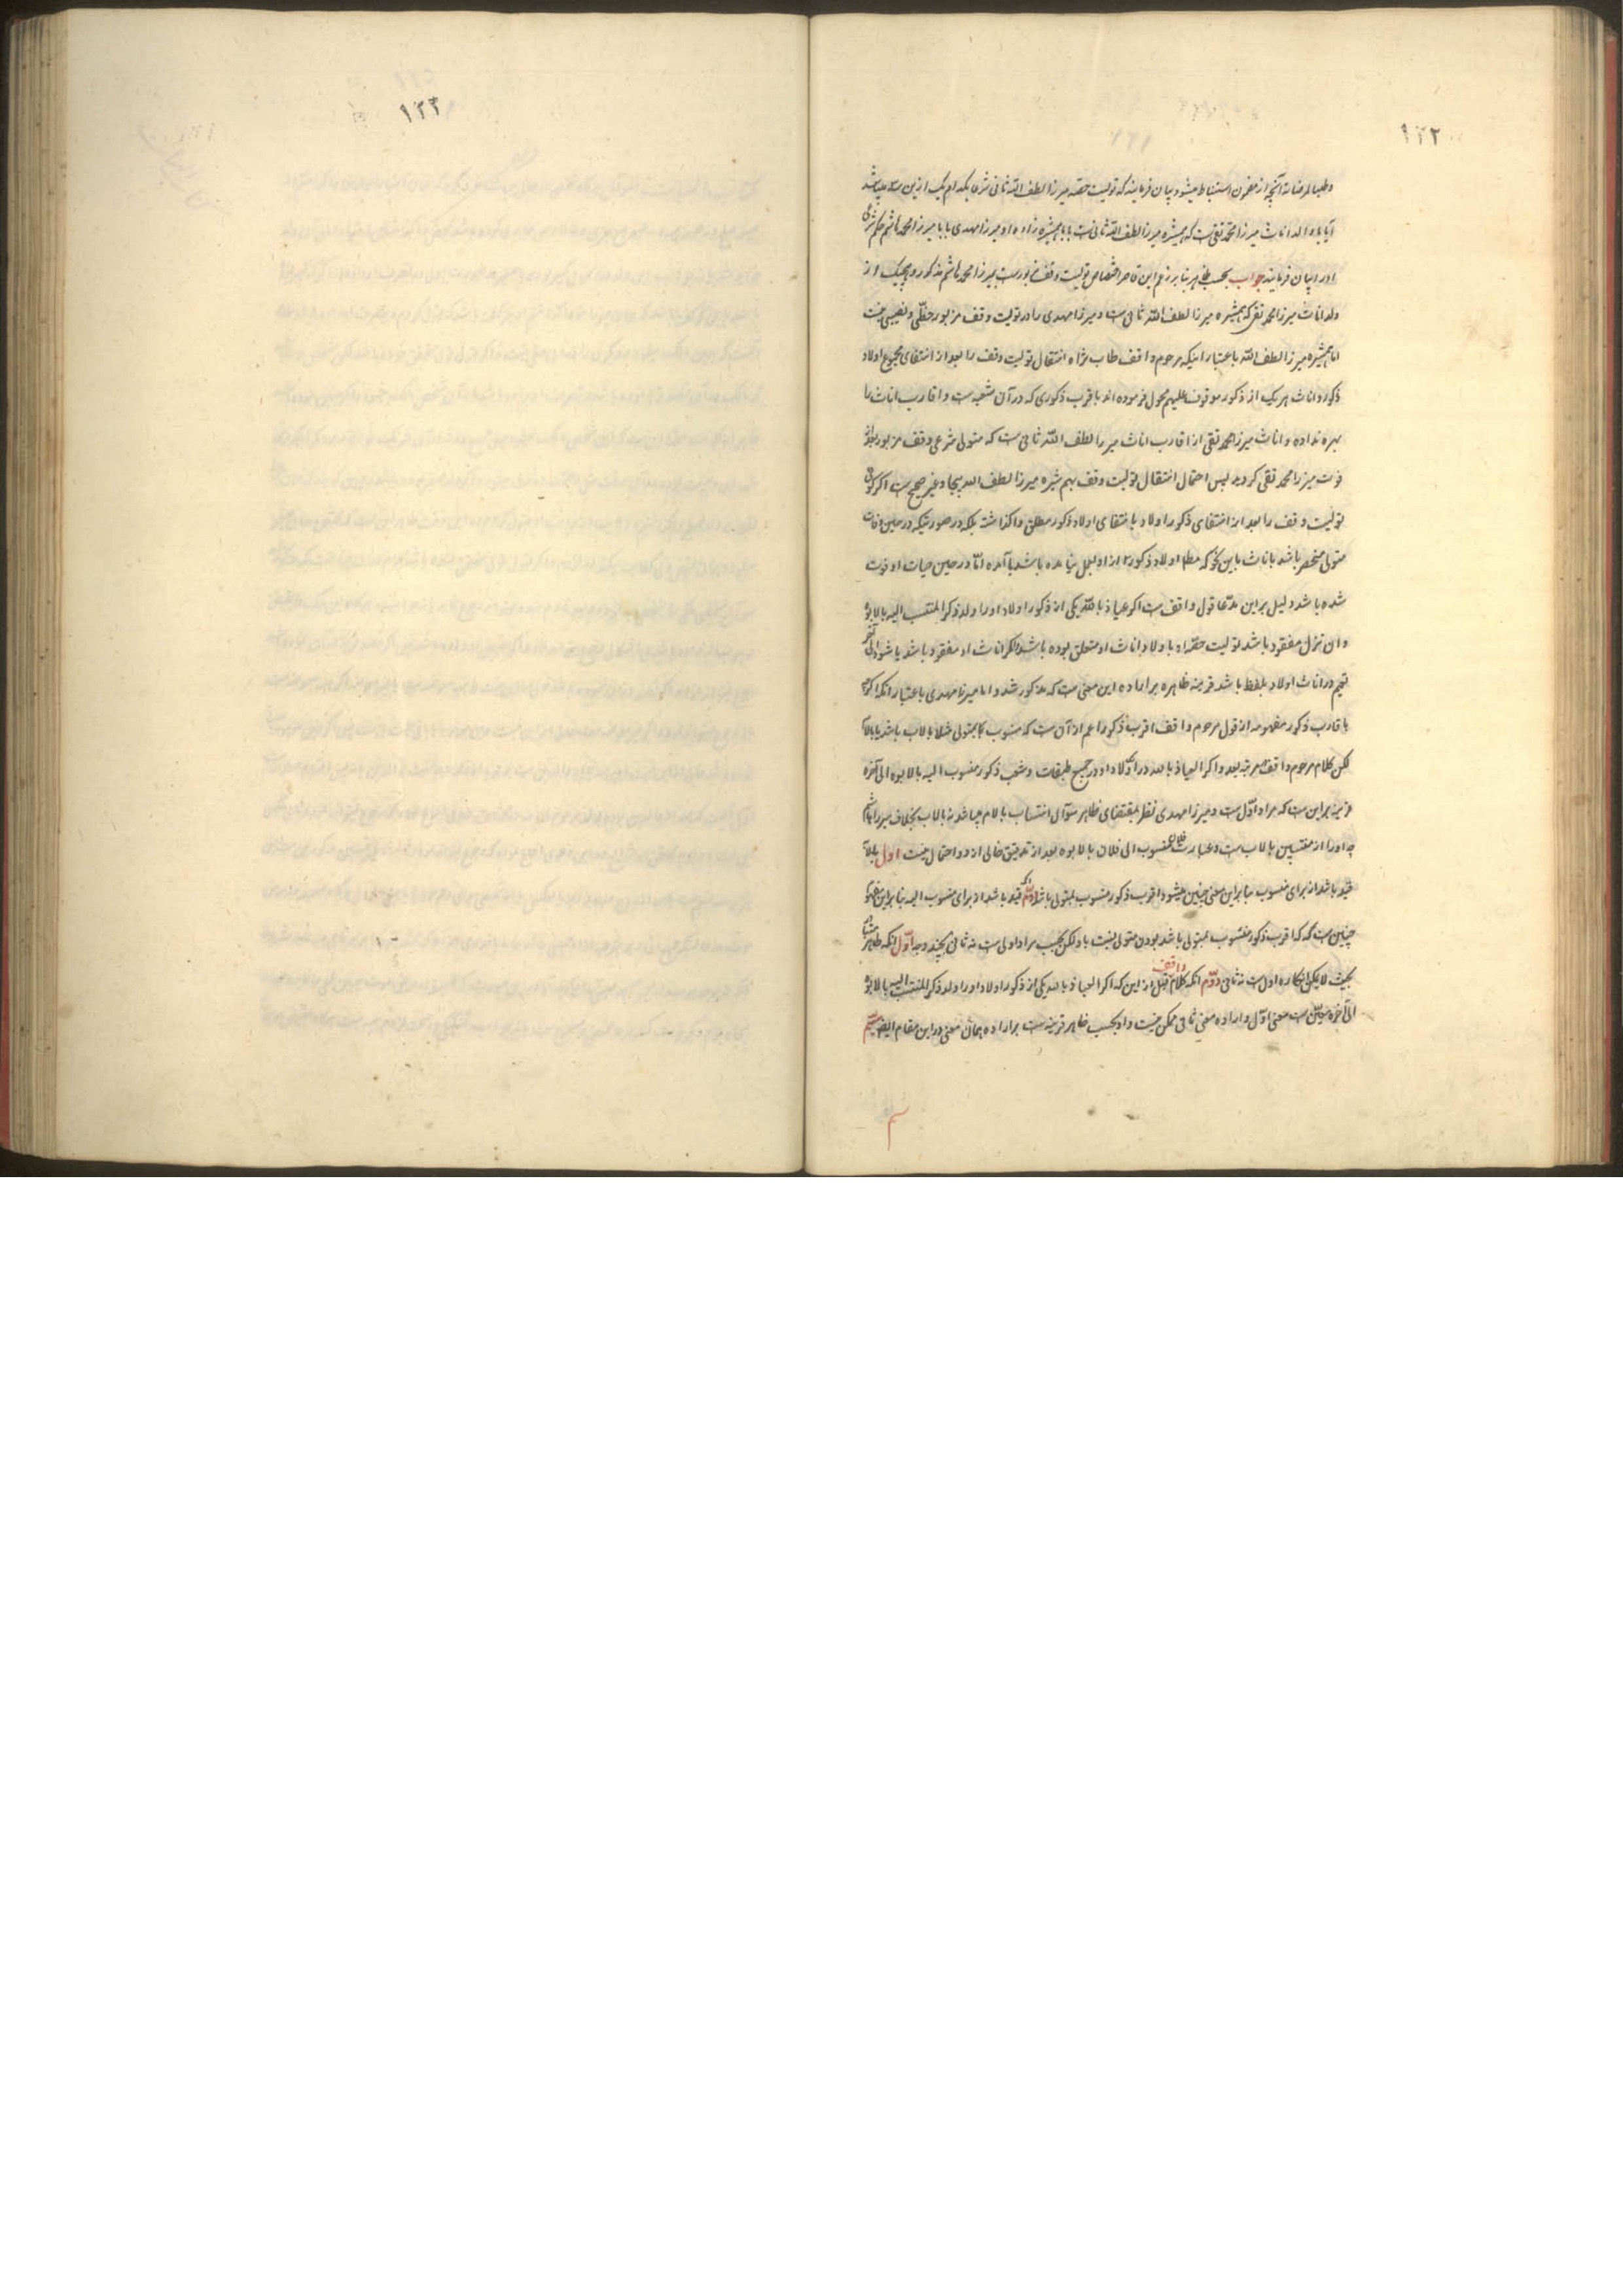 ۱۲۲
وطلبا لمرضاته آنچه از مضمون استنباط میشود بیان فرمایند که تولیت حصه میرزا لطف الله ثانی شرعا بکدام یک ازین سه میباشد
آیا با والد اناث میرزا محمد تقی است که همشیره میرزا لطف الله ثانی است یا با همشیره زاده او میرزا مهدی یا با میرزا محمد هاشم حکم شرعی
اورا بیان فرمایند جواب بحسب ظاهر بنا بر زعم این قاصر اختصاص تولیت وقف مزبورست بمیرزا محمد هاشم مذکور و هیچیک از
ولد اناث میرزا محمد تقی که همشیره میرزا لطف الله ثانی است و میرزا مهدی را در تولیت وقف مزبور حظی و نصیبی نیست
اما همشیره میرزا لطف الله باعتبار اینکه مرحوم واقف طاب ثراه انتقال تولیت وقف را بعد از انتفای مجموع اولاد
ذکور و اناث هر یک از ذکور موقوف علیهم محول فرموده اند باقرب ذکوری که در آن شعبه است و اقارب اناث را
بهره نداده و اناث میرزا محمد تقی از اقارب اناث میرزا لطف الله ثانی است که متولی شرعی وقف مزبور بعد از
فوت میرزا محمد تقی گردید پس احتمال انتقال تولیت وقف بهمشیره میرزا لطف الله بیجا و غیر صحیح است اگر گویی
تولیت وقف را بعد از انتفای ذکور اولاد با انتفای اولاد ذکور مطلق واگذاشت بلکه در صورتیکه در حین وفات
متولی منحصر باشد باناث باین نحو که مطلقا اولاد ذکور از او بعمل نیامده باشد یا آمده اما در حین حیات او فوت
شده باشد دلیل بر این مدعا قول واقف است اگر عیاذ بالله یکی از ذکور اولاد او را ولد ذکر المنتسب الیه بالابوه
و ان نزل مفقود باشد تولیت حصه او با اولاد اناث او متعلق بوده باشد اگر اناث او مفقود باشد یا شود الی آخر
تعیم در اناث اولاد بلفظ باشد قرینه ظاهره بر اراده این معنی است که مذکور شد و اما میرزا مهدی باعتبار آنکه اگرچه
باقارب ذکور مفهومه از قول مرحوم واقف اقرب ذکور اعم از آن است که منسوب بمتولی مثلا بالاب باشد یا بالام
لکن کلام مرحوم واقف مرتبه بعد و اگر العیاذ بالله در اولاد او در جمیع طبقات و شعب ذکور منسوب الیه بالابوه الی آخره
قرینه بر این است که مراد اول است و میرزا مهدی نظر بمقتضای ظاهر سؤال انتساب بالام میباشد نه بالاب بخلاف میرزا هاشم
چه او را از منتسبین بالاب است و عبارت فلان منسوب الی فلان بالابوه بعد از تدقیق خالی از دو احتمال نیست اول بالاب
قید باشد از برای منسوب بنا بر این معنی چنین میشود اقرب ذکور منسوب بمتولی باشد دوم آنکه قید باشد از برای منسوب الیه بنا بر این معنی
چنین است که اقرب ذکور منسوب بمتولی باشد بودن متولی نسبت باو لکن بحسب مراد اولی است نه ثانی بچند وجه اول آنکه ظاهر
بحیث لا یمکن انکاره اول است نه ثانی دوم آنکه کلام واقف قبل از این که اگر العیاذ بالله یکی از ذکور اولاد او را ولد ذکر المنتسب الیه بالابوه
الی آخره مبین است معنی اول و اراده معنی ثانی ممکن نیست و او بحسب ظاهر قرینه است بر اراده همان معنی در این مقام ایضا سیم
۱۲۳